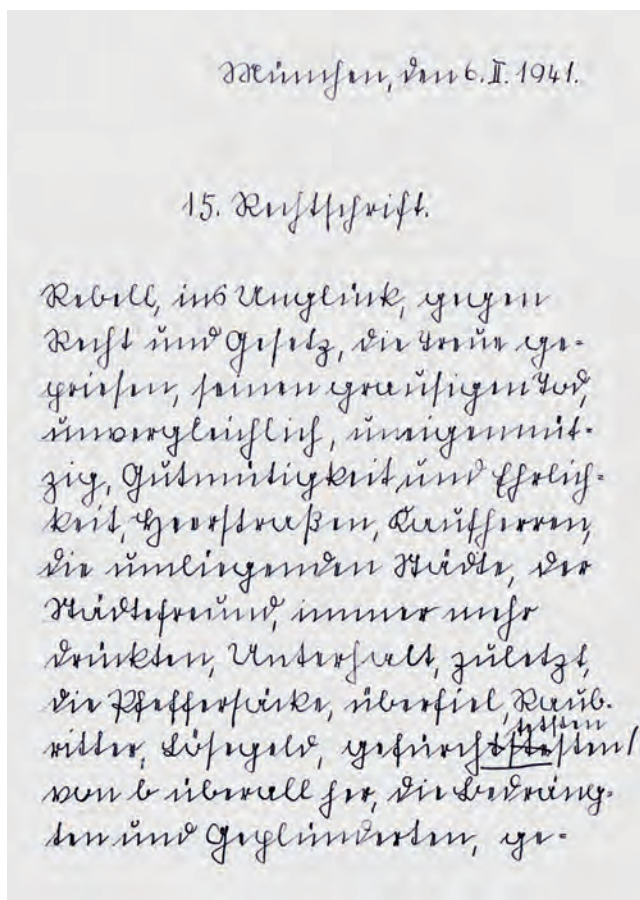 München, den 6. II. 1941.
15. Rechtschrift.
Rebell, ins Unglück, gegen
Recht und Gesetz, die Treue ge-
priesen, seinen grausigen Tod,
unvergleichlich, uneigennüt-
zig, Gutmütigkeit und Ehrlich-
keit, Heerstraßen, Kaufherren,
die umliegenden Städte, der
Städtefreund, immer mehr
drückten, Unterhalt, zuletzt,
die Pfeffersäcke, überfiel, Raub-
ritter, Lösegeld, gefürch sten /
von b überall her, die Bedräng-
ten und Geplünderten, ge-